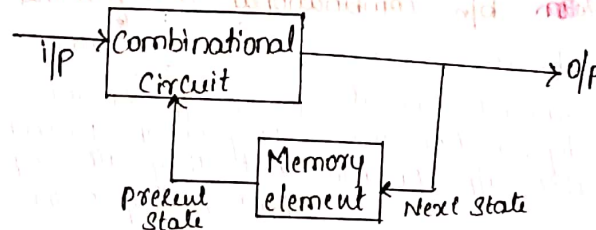 i/p
Combinational
Circuit
O/P
Memory
element
Present
State
Next State